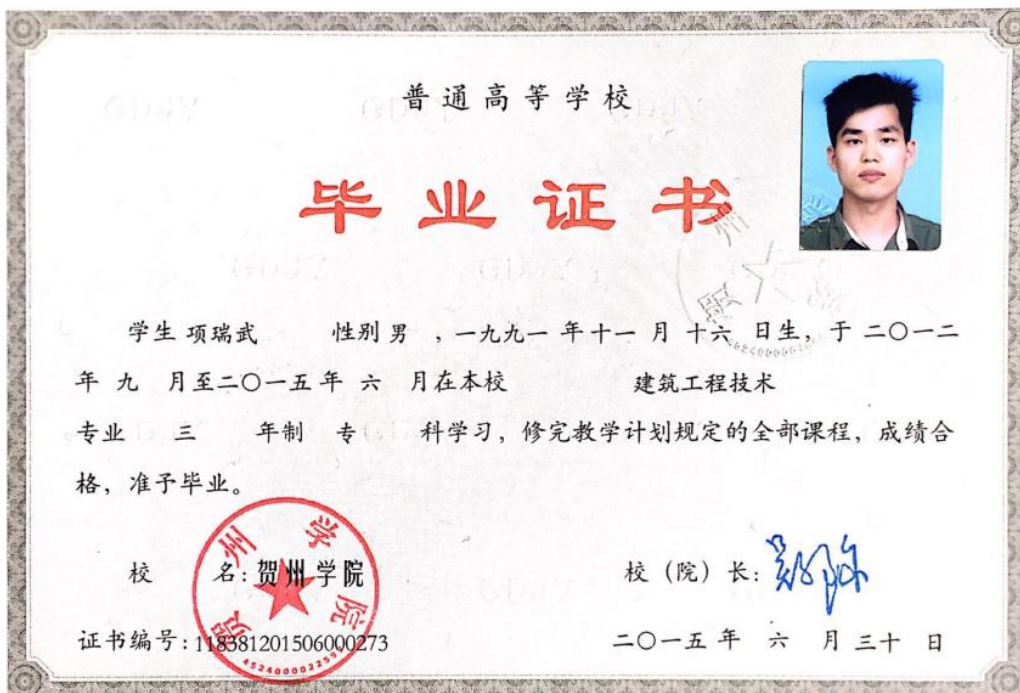 普通高等学校
毕业证书
学生 项瑞武 性别 男 ，一九九一 年 十一 月 十六 日生，于 二〇一二
年 九 月至二〇一五 年 六 月在本校 建筑工程技术
专业 三 年制 专 科学习，修完教学计划规定的全部课程，成绩合
格，准予毕业。
校 名：贺州学院
校（院）长：
证书编号：118381201506000273
二〇一五 年 六 月 三十 日
贺州学院